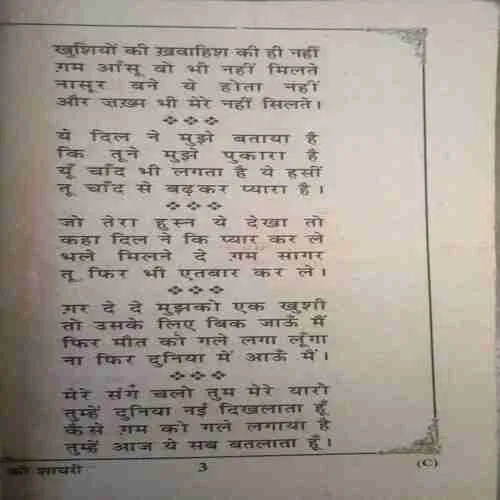 खुशियों की ख़वाहिश की ही नहीं
ग़म आँसू वो भी नहीं मिलते
नासूर बने ये होता नहीं
और ज़ख़्म भी मेरे नहीं सिलते।
❖❖❖
ये दिल ने मुझे बताया है
कि तूने मुझे पुकारा है
यूँ चाँद भी लगता है ये हसीं
तू चाँद से बढ़कर प्यारा है।
❖❖❖
जो तेरा हुस्न ये देखा तो
कहा दिल ने कि प्यार कर ले
भले मिलने दे ग़म सागर
तू फिर भी एतबार कर ले।
❖❖❖
ग़र दे दे मुझको एक खुशी
तो उसके लिए बिक जाऊँ मैं
फिर मौत को गले लगा लूँगा
ना फिर दुनिया में आऊँ मैं।
❖❖❖
मेरे संग चलो तुम मेरे यारो
तुम्हें दुनिया नई दिखलाता हूँ
कैसे ग़म को गले लगाया है
तुम्हें आज ये सब बतलाता हूँ।
की शायरी 3 (C)